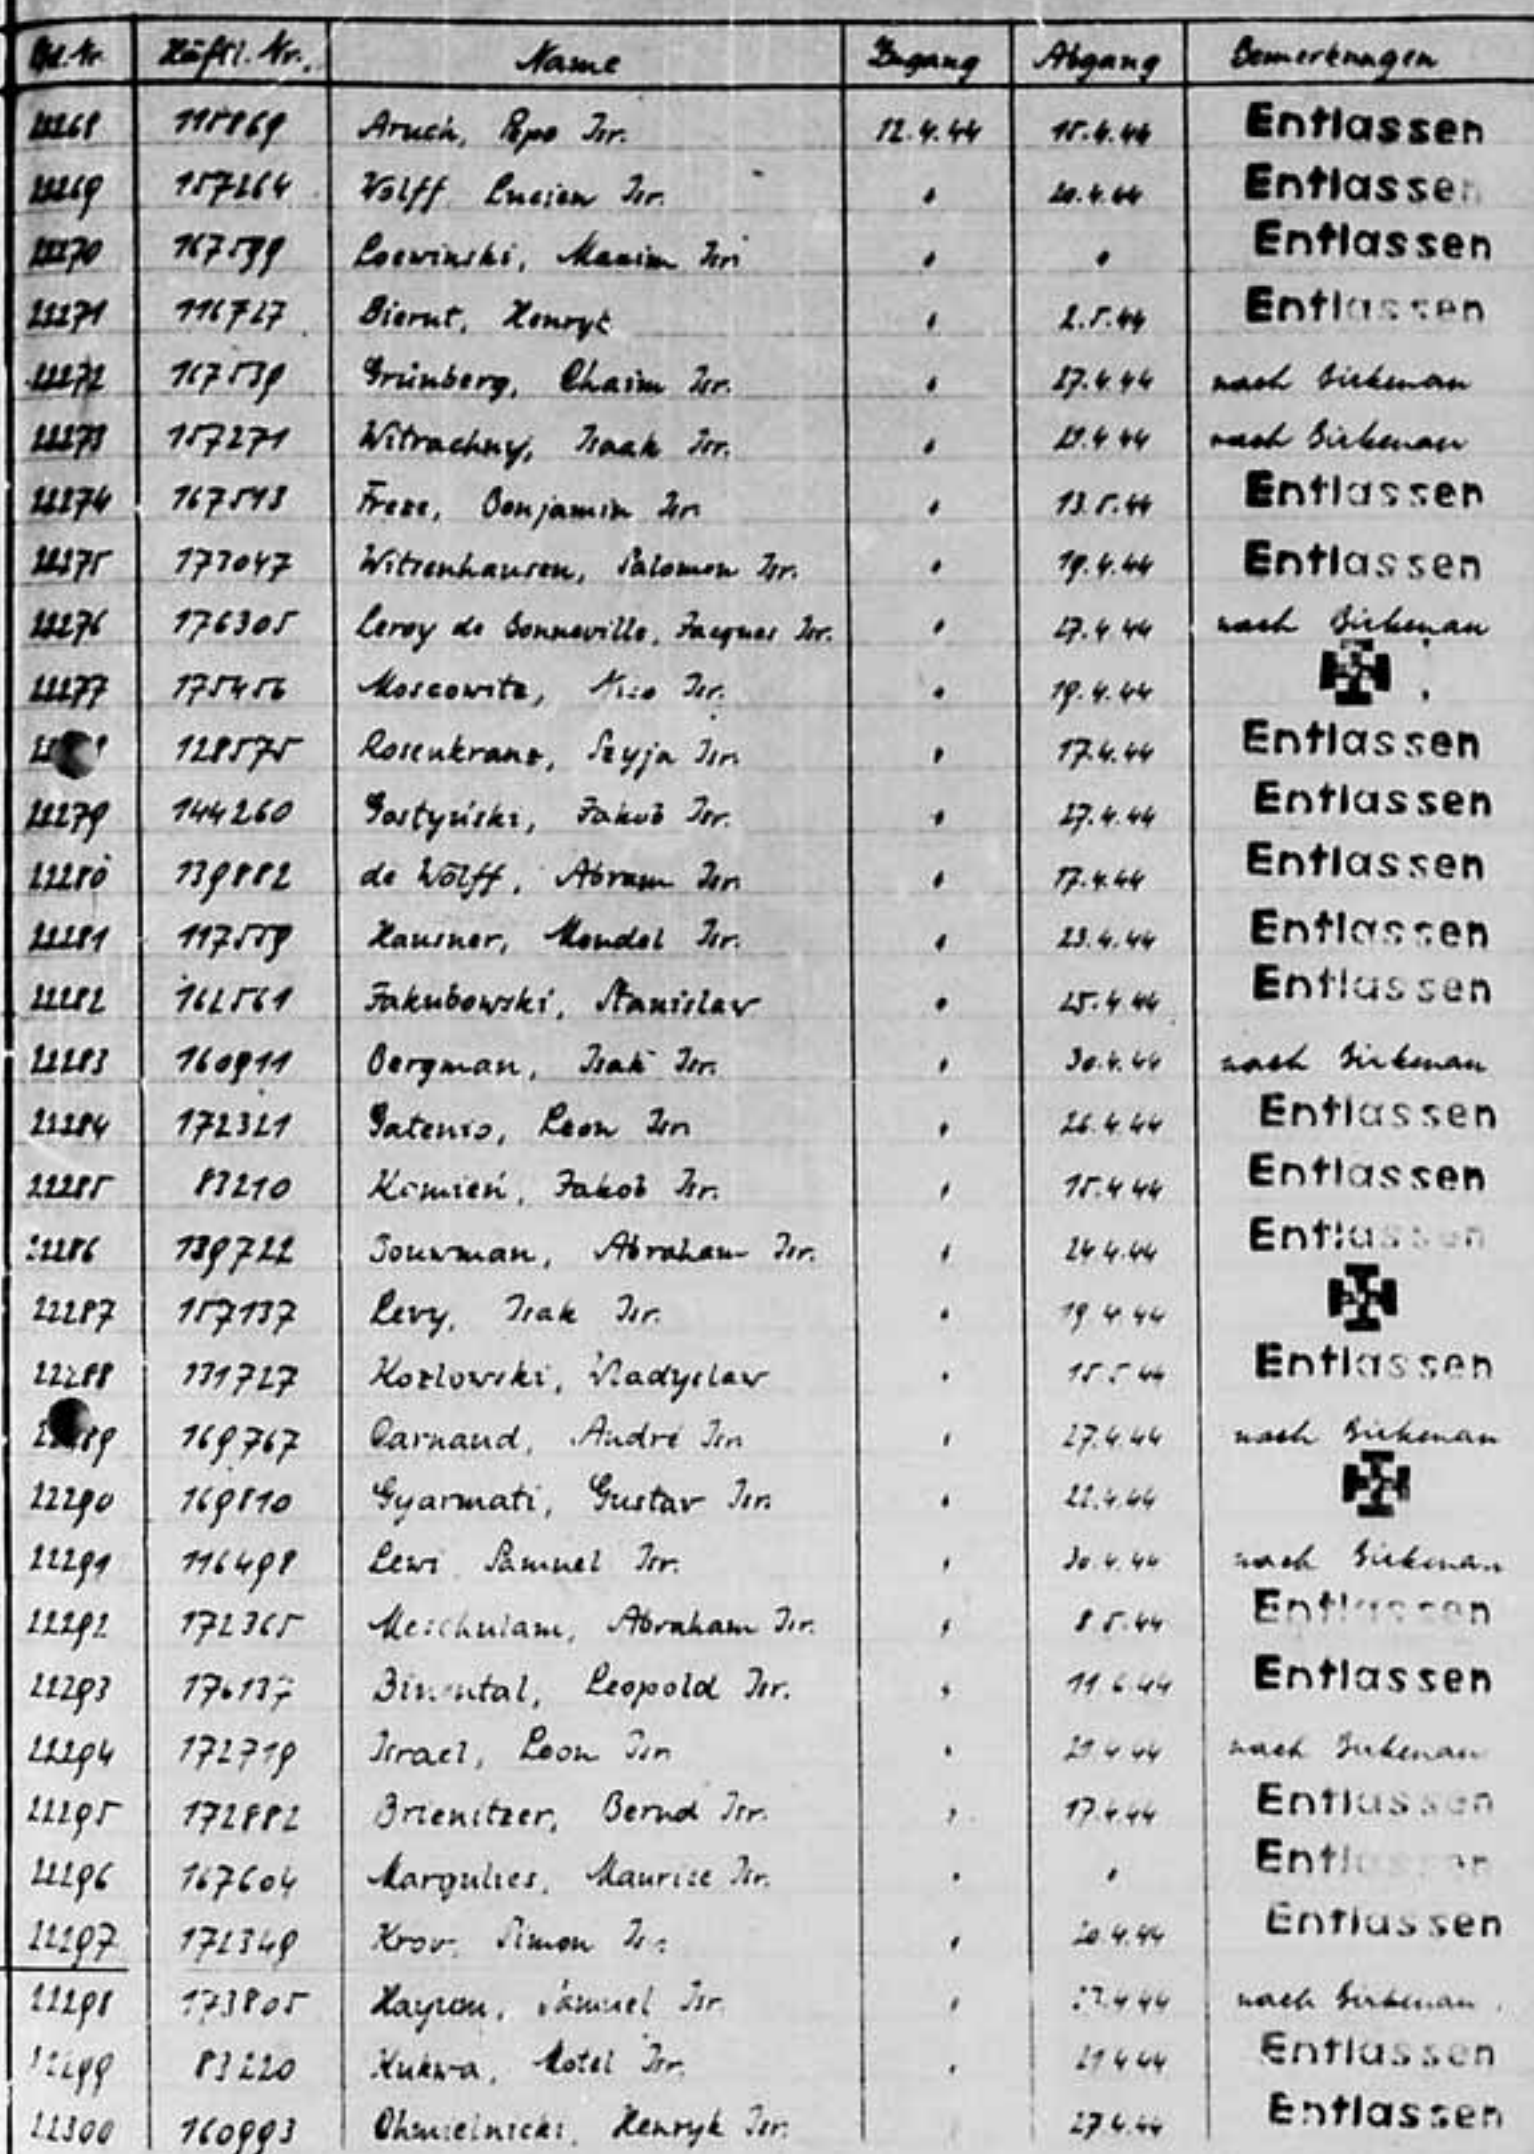 Lfd. Nr. Häftl. Nr. Name Zugang Abgang Bemerkungen
22268 118869 Aruch, Pepo Isr. 12.4.44 15.4.44 Entlassen
22269 157264 Wolff Lucien Isr. " 20.4.44 Entlassen
22270 167599 Loewinski, Maxim Isr. " " Entlassen
22271 116727 Bierut, Henryk " 2.5.44 Entlassen
22272 167539 Grünberg, Chaim Isr. " 27.4.44 nach Birkenau
22273 157271 Witrachny, Isaak Isr. " 29.4.44 nach Birkenau
22274 167513 Frese, Benjamin Isr. " 13.5.44 Entlassen
22275 177047 Witzenhausen, Salomon Isr. " 19.4.44 Entlassen
22276 176305 Leroy de Bonneville, Jacques Isr. " 27.4.44 nach Birkenau
22277 175456 Moscowitz, Isr. " 19.4.44
128575 Rosenkranz, Szyja Isr. " 17.4.44 Entlassen
22279 144260 Gostyński, Jakob Isr. " 27.4.44 Entlassen
22280 139882 de Wolff, Abram Isr. " 17.4.44 Entlassen
22281 117559 Hausner, Mendel Isr. " 23.4.44 Entlassen
22282 162561 Jakubowski, Stanislaw " 25.4.44 Entlassen
22283 160911 Bergman, Isak Isr. " 30.4.44 nach Birkenau
22284 172321 Gatenio, Leon Isr. " 26.4.44 Entlassen
22285 83210 Kamień, Jakob Isr. " 15.4.44 Entlassen
22286 139722 Bouwman, Abraham Isr. " 24.4.44 Entlassen
22287 157137 Levy, Isak Isr. " 19.4.44
22288 131727 Kozlowski, Wladyslaw " 15.5.44 Entlassen
22289 169767 Carnaud, André Isr. " 27.4.44 nach Birkenau
22290 169810 Gyarmati, Gustav Isr. " 22.4.44
22291 116498 Lewi Samuel Isr. " 30.4.44 nach Birkenau
22292 172365 Meschulam, Abraham Isr. " 8.5.44 Entlassen
22293 176137 Binental, Leopold Isr. " 11.6.44 Entlassen
22294 172719 Israel, Leon Isr. " 29.4.44 nach Birkenau
22295 172882 Brienitzer, Bernd Isr. " 17.4.44 Entlassen
22296 167604 Margulies, Maurice Isr. " " Entlassen
22297 172349 Krov, Simon Isr. " 20.4.44 Entlassen
22298 173805 Samuel Isr. " 27.4.44 nach Birkenau
22299 83220 Kukwa, Motel Isr. " 21.4.44 Entlassen
22300 160993 Chmielnicki, Henryk Isr. 27.4.44 Entlassen